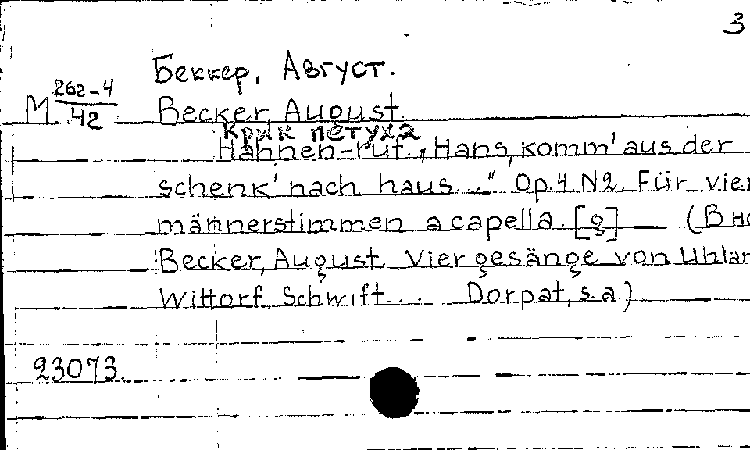 3
Беккер, Август.
М 262-4/42 Becker, August.
Крик петуха
Hahnen-ruf. „Hans, komm' aus der
schenk' nach haus..." Op.4 N2. Für vier
männerstimmen a capella. [g] (В но
Becker, August. Vier gesänge von Uhlan
Wittorf, Schwift... Dorpat, s.a)
23073.